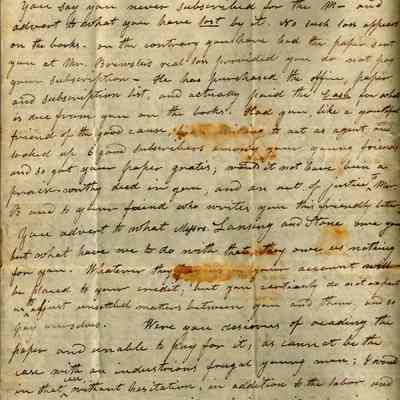 You say you never subscribed for the M— and
advert to what you have lost by it. No such loss appears
on the books. on the contrary you have had the paper sent
you at Mr. Brewster's real loss provided you do not pay
your subscription— He has purchased the office, paper
and subscription list, and actually paid the Cash for what
is due from you on the books. Had you, like a youthful
friend of the good cause, to act as agent and
looked up 6 good subscribers among your young friends
and so got your paper gratis; would it not have been a
praiseworthy deed in you, and an act of justice to Mr.
B and to your friend who writes you this friendly letter
You advert to what Messrs. Lansing and Stone owe you
but what have we to do with that, they owe us nothing
for you. Whatever they your account will
be placed to your credit, but you certainly do not expect
us to adjust unsettled matters between you and them, and so
for ourselves. Were you desirous of reading the
paper and unable to pay for it, as cannot be the
case with an industrious frugal young man; I would
in that case without hesitation, in addition to the labor and